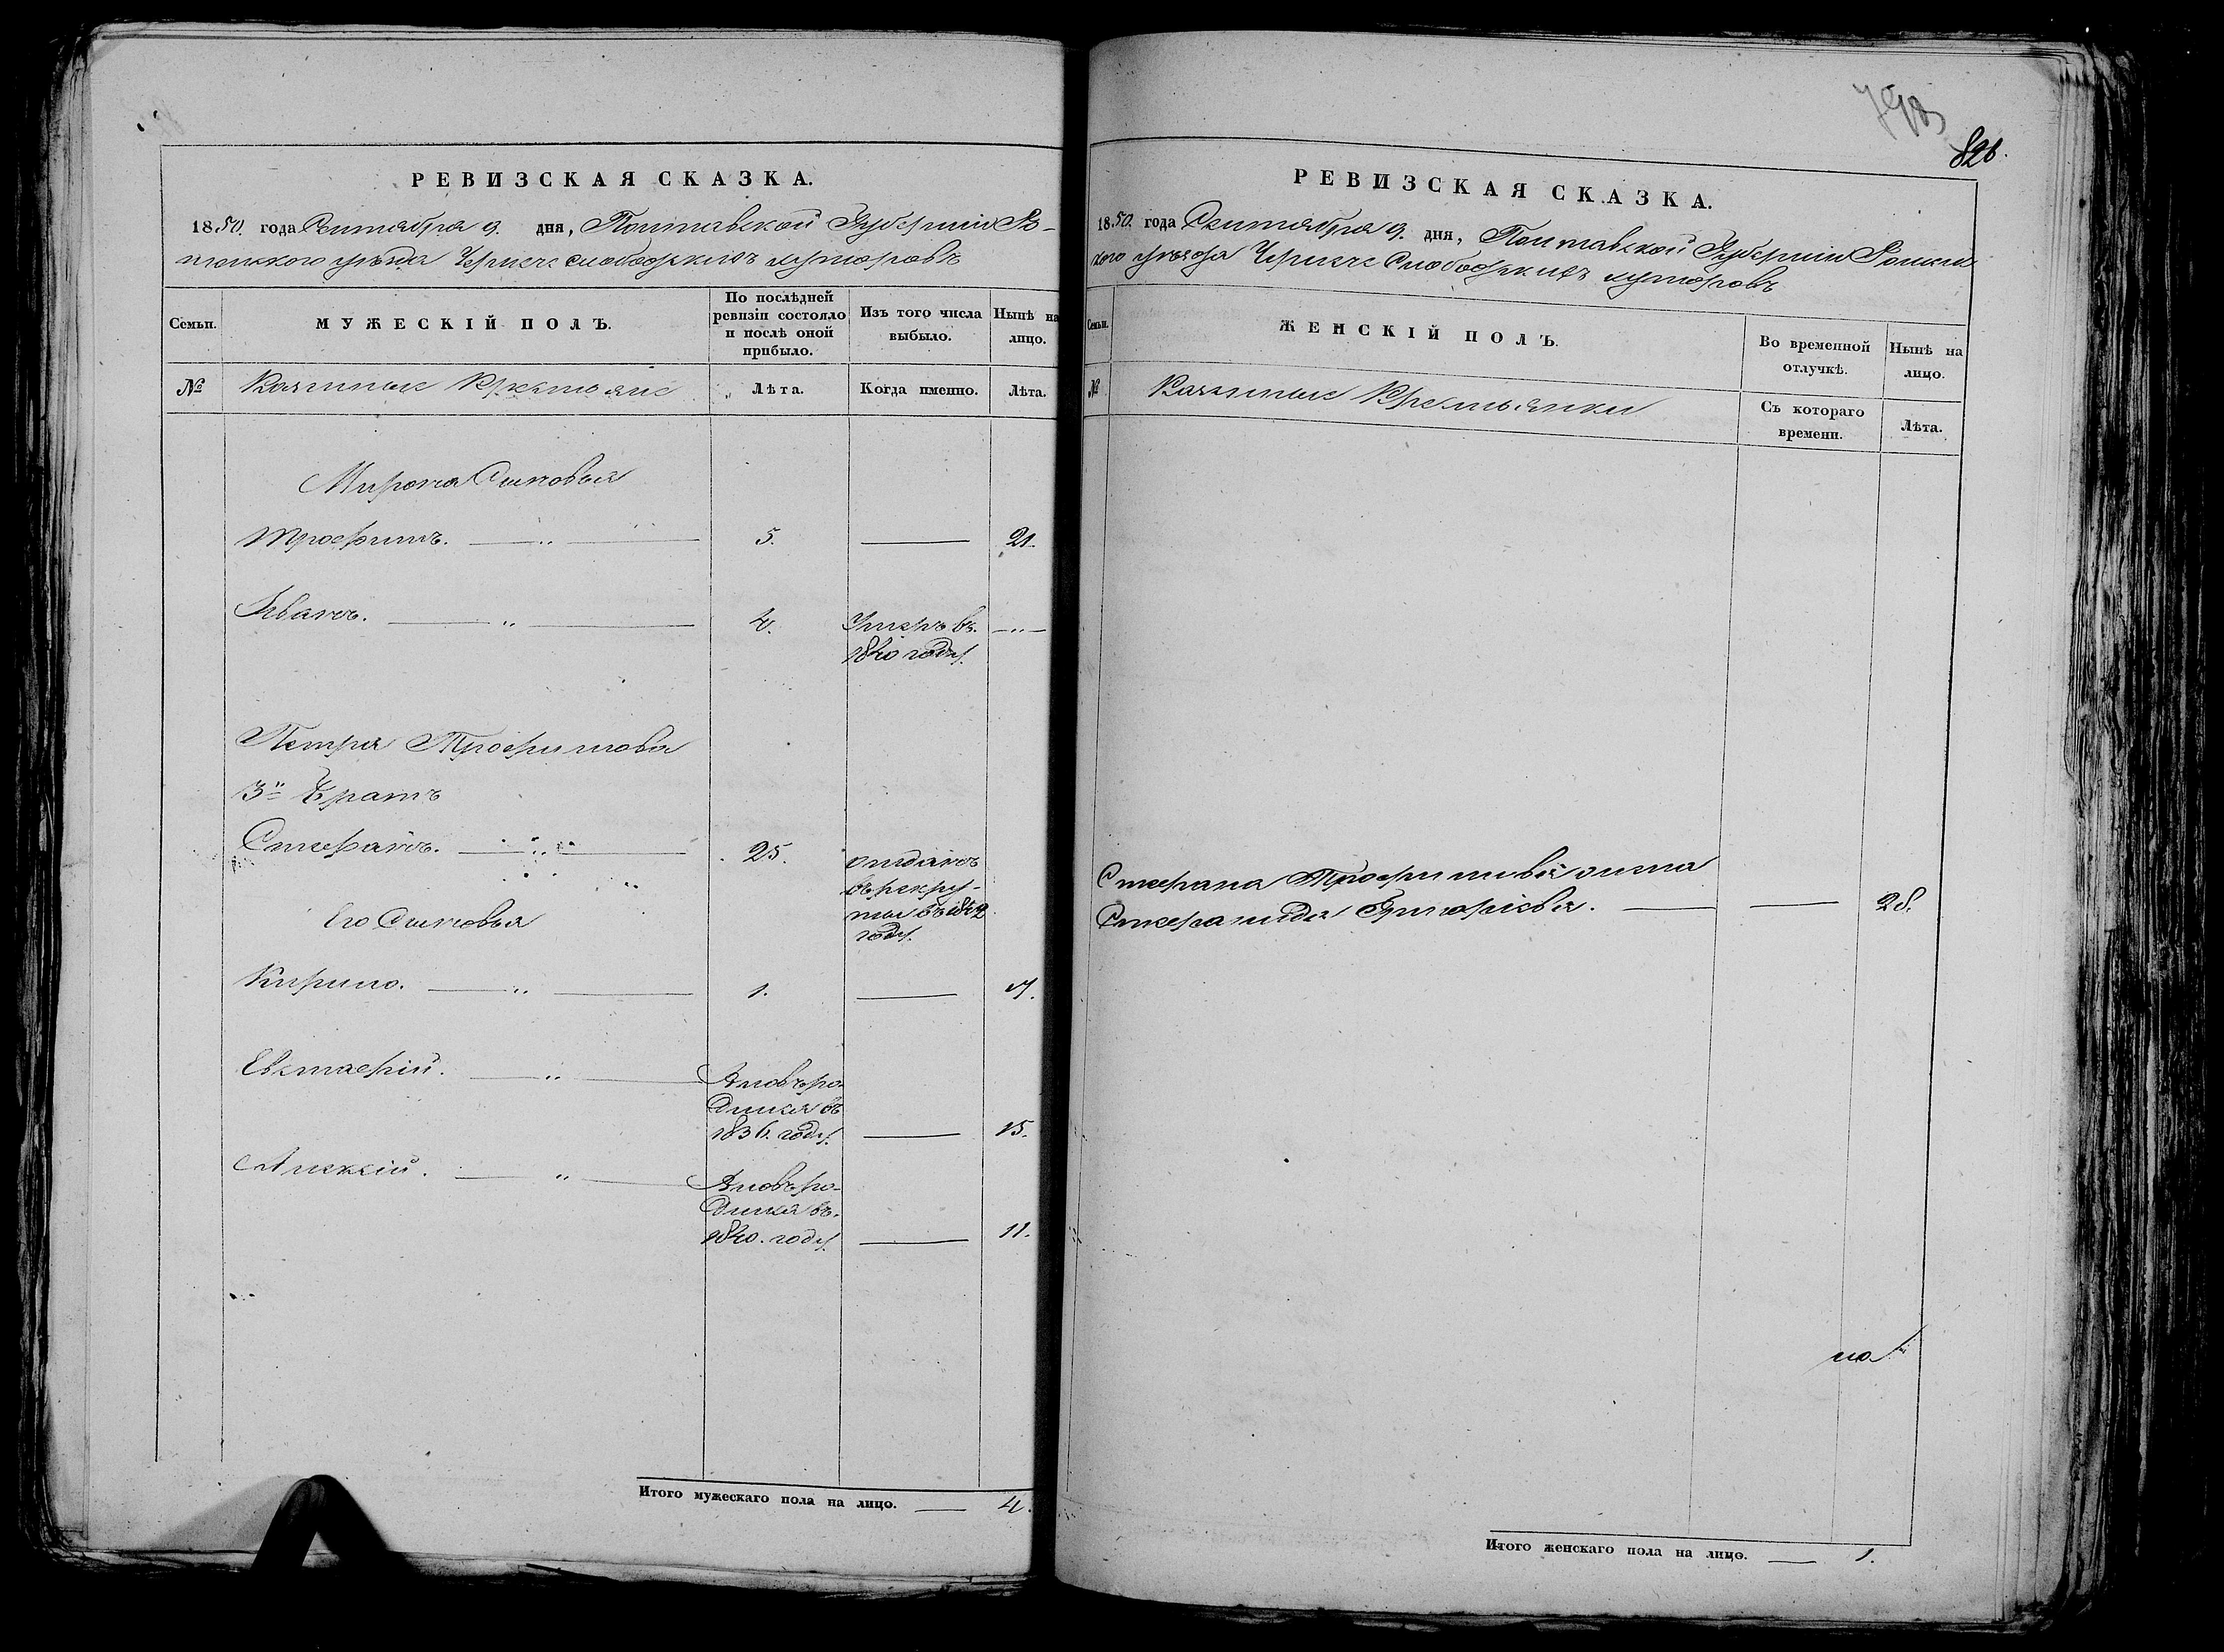 РЕВИЗСКАЯ СКАЗКА.
1850. года Сентября 9. дня, Полтавской Губерніи Ро-
менского уѣзда Черлече слободскихъ хуторовъ
Семьи.
МУЖЕСКІЙ ПОЛЪ.
По послѣдней ревизіи состояло и послѣ оной прибыло.
Изъ того числа выбыло.
Нынѣ на лицо.
№
Казенные Крестьяне
Лѣта.
Когда именно.
Лѣта.
Мирона Сыновья
Трофимъ. — „ — 5. — 21.
Иванъ. — „ — 4. Умеръ въ — „ —
1840 году.
Петра Трофимова
3й Братъ
Стефанъ. — „ — 25. отданъ
въ рекру-
ты въ 1842
году.
Его Сыновья
Кирило. — „ — 1. — 17.
Евстафій. — „ — Вновь ро-
дился въ
1836. году. — 15.
Алексій. — „ — Вновь ро-
дился въ
1840. году. — 11.
Итого мужескаго пола на лицо. — 4.
826.
РЕВИЗСКАЯ СКАЗКА.
1850. года Сентября 9. дня, Полтавской Губерніи Ромен
кого уѣзда Черлече Слободскихъ хуторовъ
Семьи.
ЖЕНСКІЙ ПОЛЪ.
Во временной отлучкѣ.
Нынѣ на лицо.
№
Казенные Крестьянки
Съ котораго времени.
Лѣта.
Стефана Трофимова жена
Стефанида Григоріева. — — 28.
Итого женскаго пола на лицо. — 1.